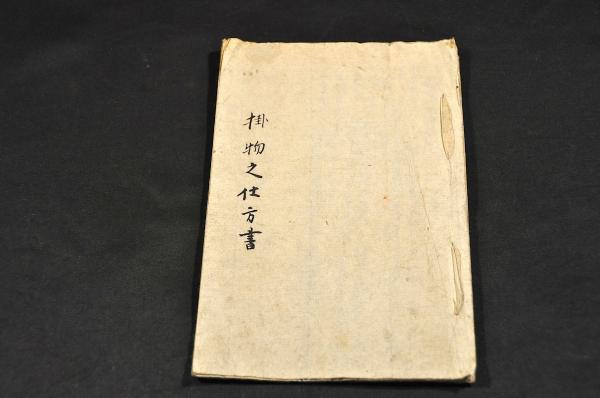 掛物之仕方書